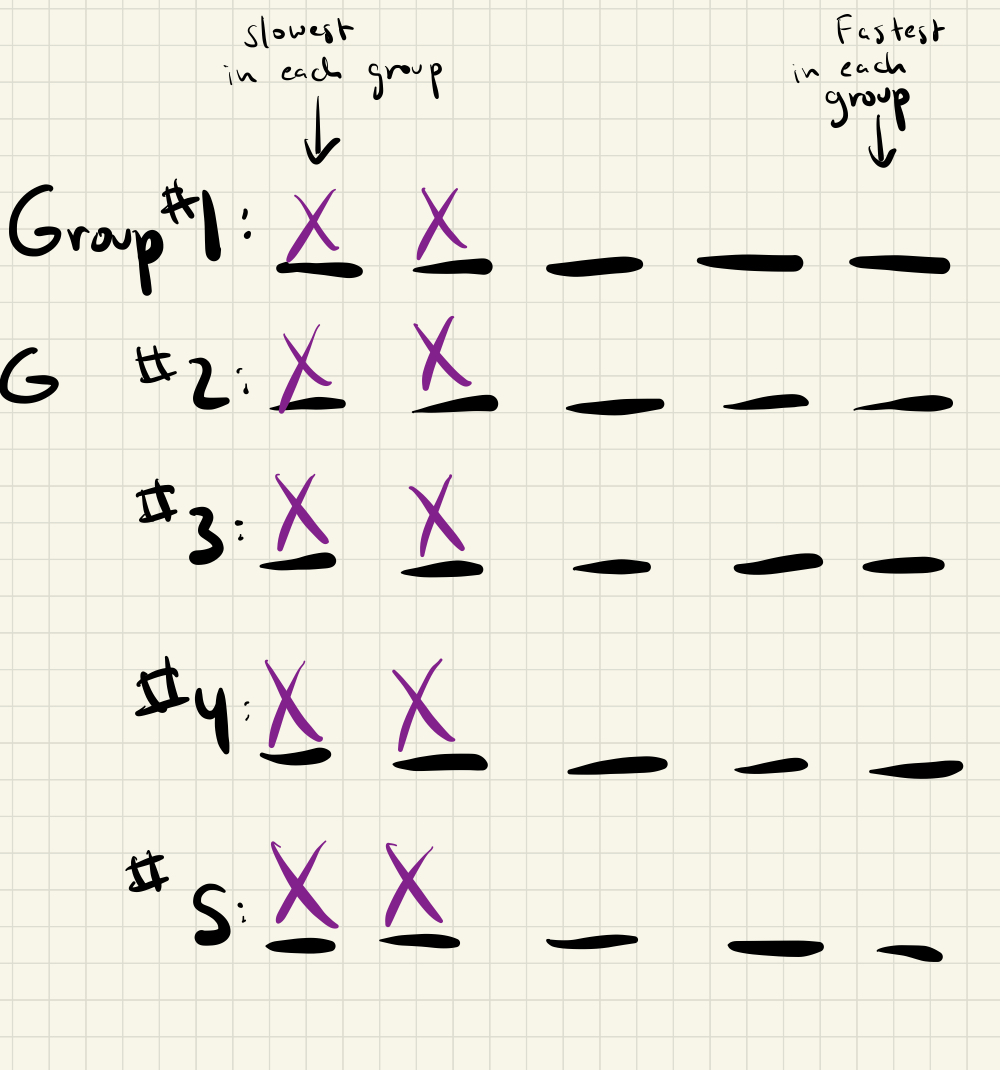 slowest
in each group
Fastest
in each
group
Group #1: X X
G #2: X X
#3: X X
#4: X X
#5: X X